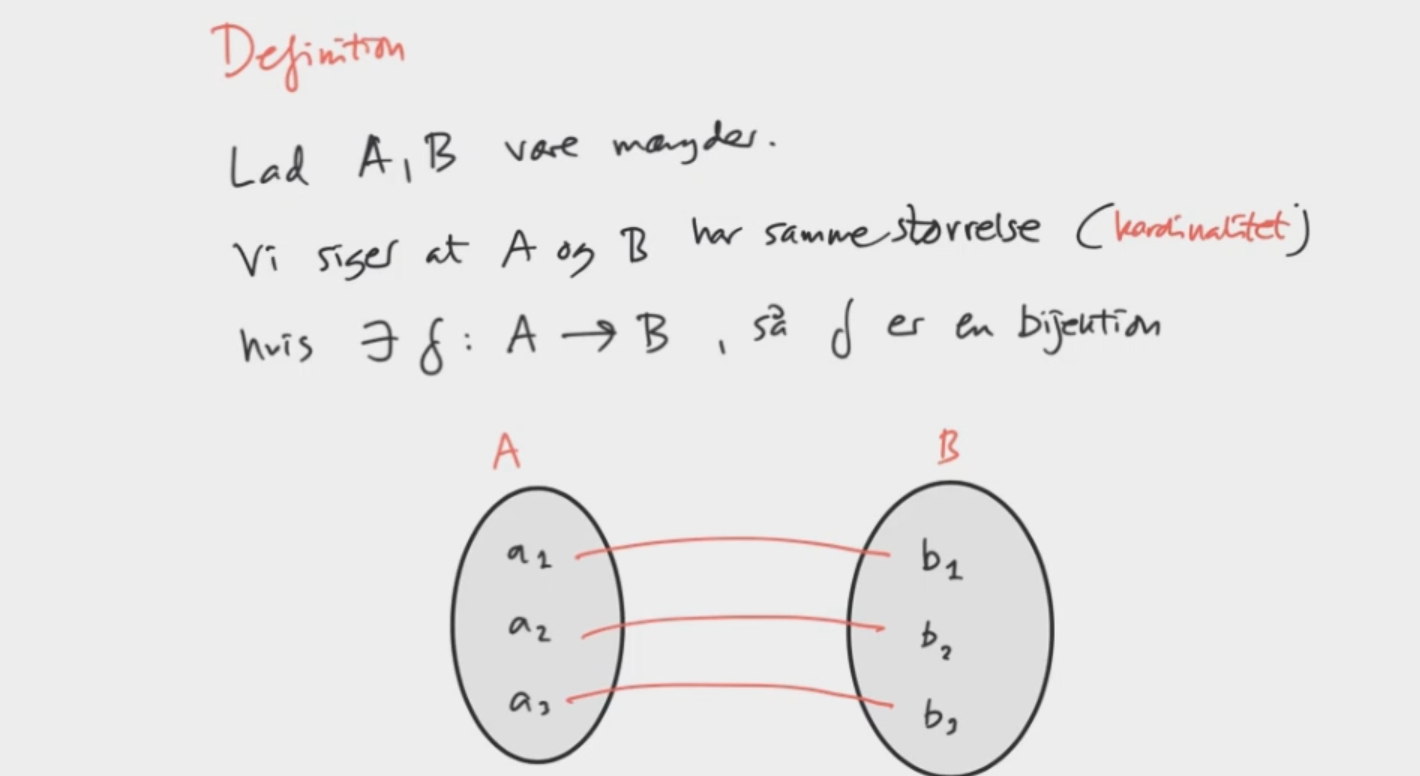 Definition
Lad A, B være mængder.
Vi siger at A og B har samme størrelse (kardinalitet)
huis ∃ f: A → B, så f er en bijektion
A B
a1 b1
a2 b2
a3 b3